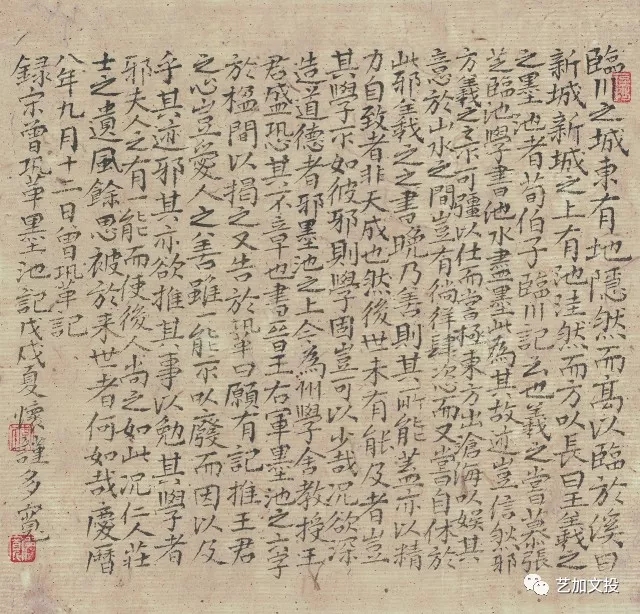 臨川之城東有地隱然而高以臨於溪曰
新城新城之上有池洼然而方以長曰王羲之
之墨池者荀伯子臨川記云也羲之嘗慕張
芝臨池學書池水盡墨此為其故迹豈信然邪
方羲之之不可彊以仕而嘗極東方出滄海以娛其
意於山水之間豈有徜徉肆恣而又嘗自休於
此邪羲之之書晚乃善則其所能蓋亦以精
力自致者非天成也然後世未有能及者豈
其學不如彼邪則學固豈可以少哉況欲深
造道德者邪墨池之上今為州學舍教授王
君盛恐其不章也書晉王右軍墨池之六字
於楹間以揭之又告於鞏曰願有記推王君
之心豈愛人之善雖一能不以廢而因以及
乎其迹邪其亦欲推其事以勉其學者
邪夫人之有一能而使後人尚之如此況仁人莊
士之遺風餘思被於来世者何如哉慶曆
八年九月十二日曾鞏記
録宋曾鞏墨池記戊戌夏懷謹多寬
艺加文投